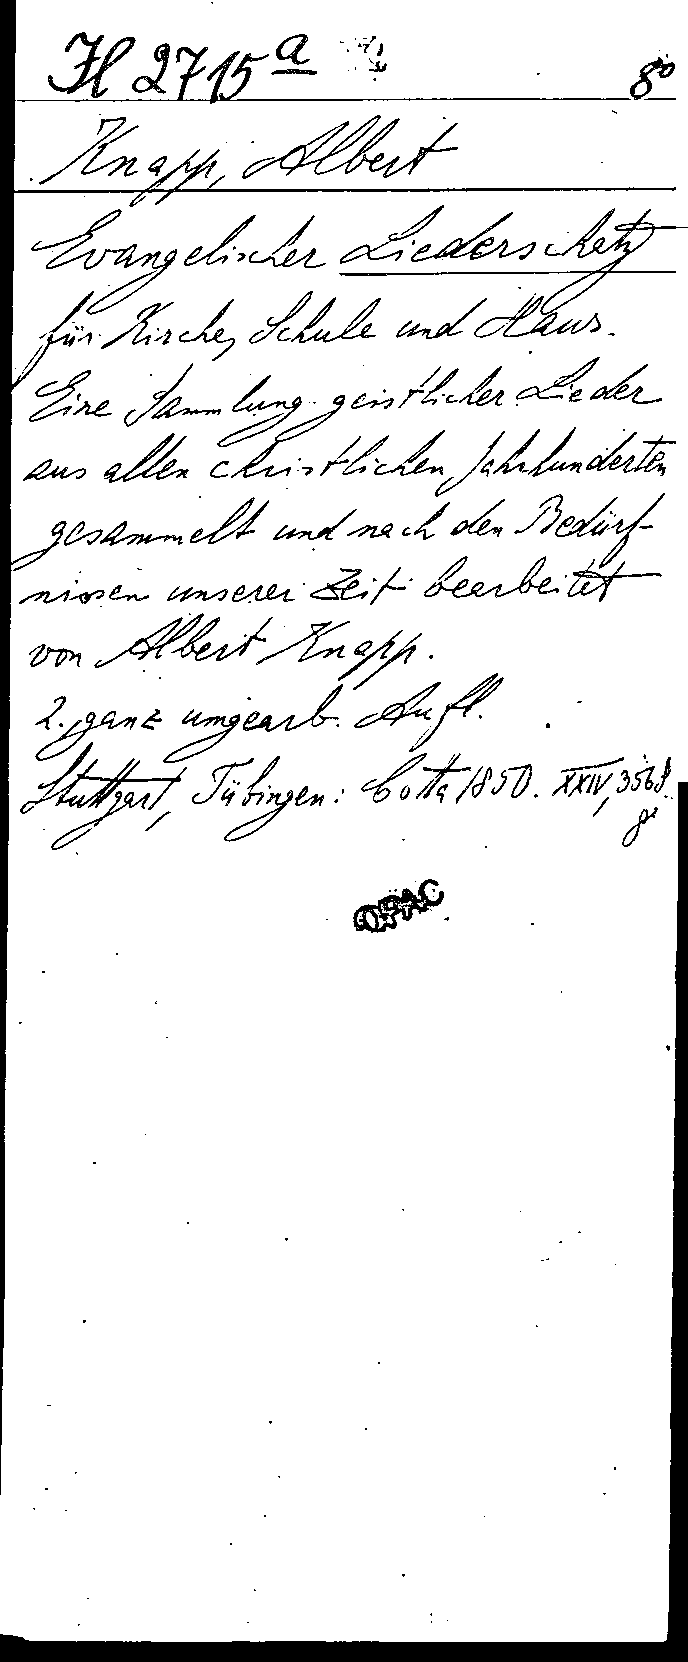 Jl 2715 a 8°
Knapp, Albert
Evangelischer Liederschatz
für Kirche, Schule und Haus.
Eine Sammlung geistlicher Lieder
aus allen christlichen Jahrhunderten
gesammelt und nach den Bedürf-
nissen unserer Zeit bearbeitet
von Albert Knapp.
2., ganz umgearb. Aufl.
Stuttgart, Tübingen: Cotta 1850. XXIV,
8°
OPAC